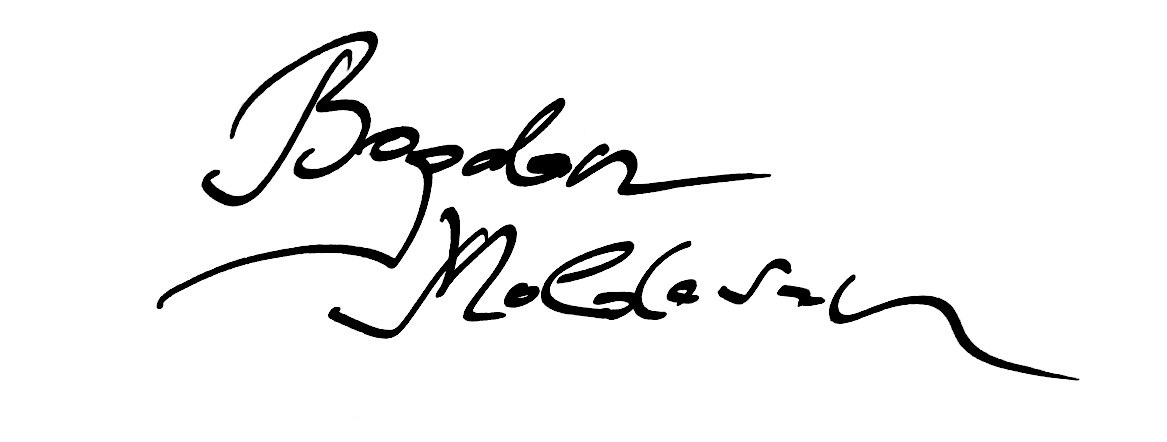 Bogdan
Moldovan